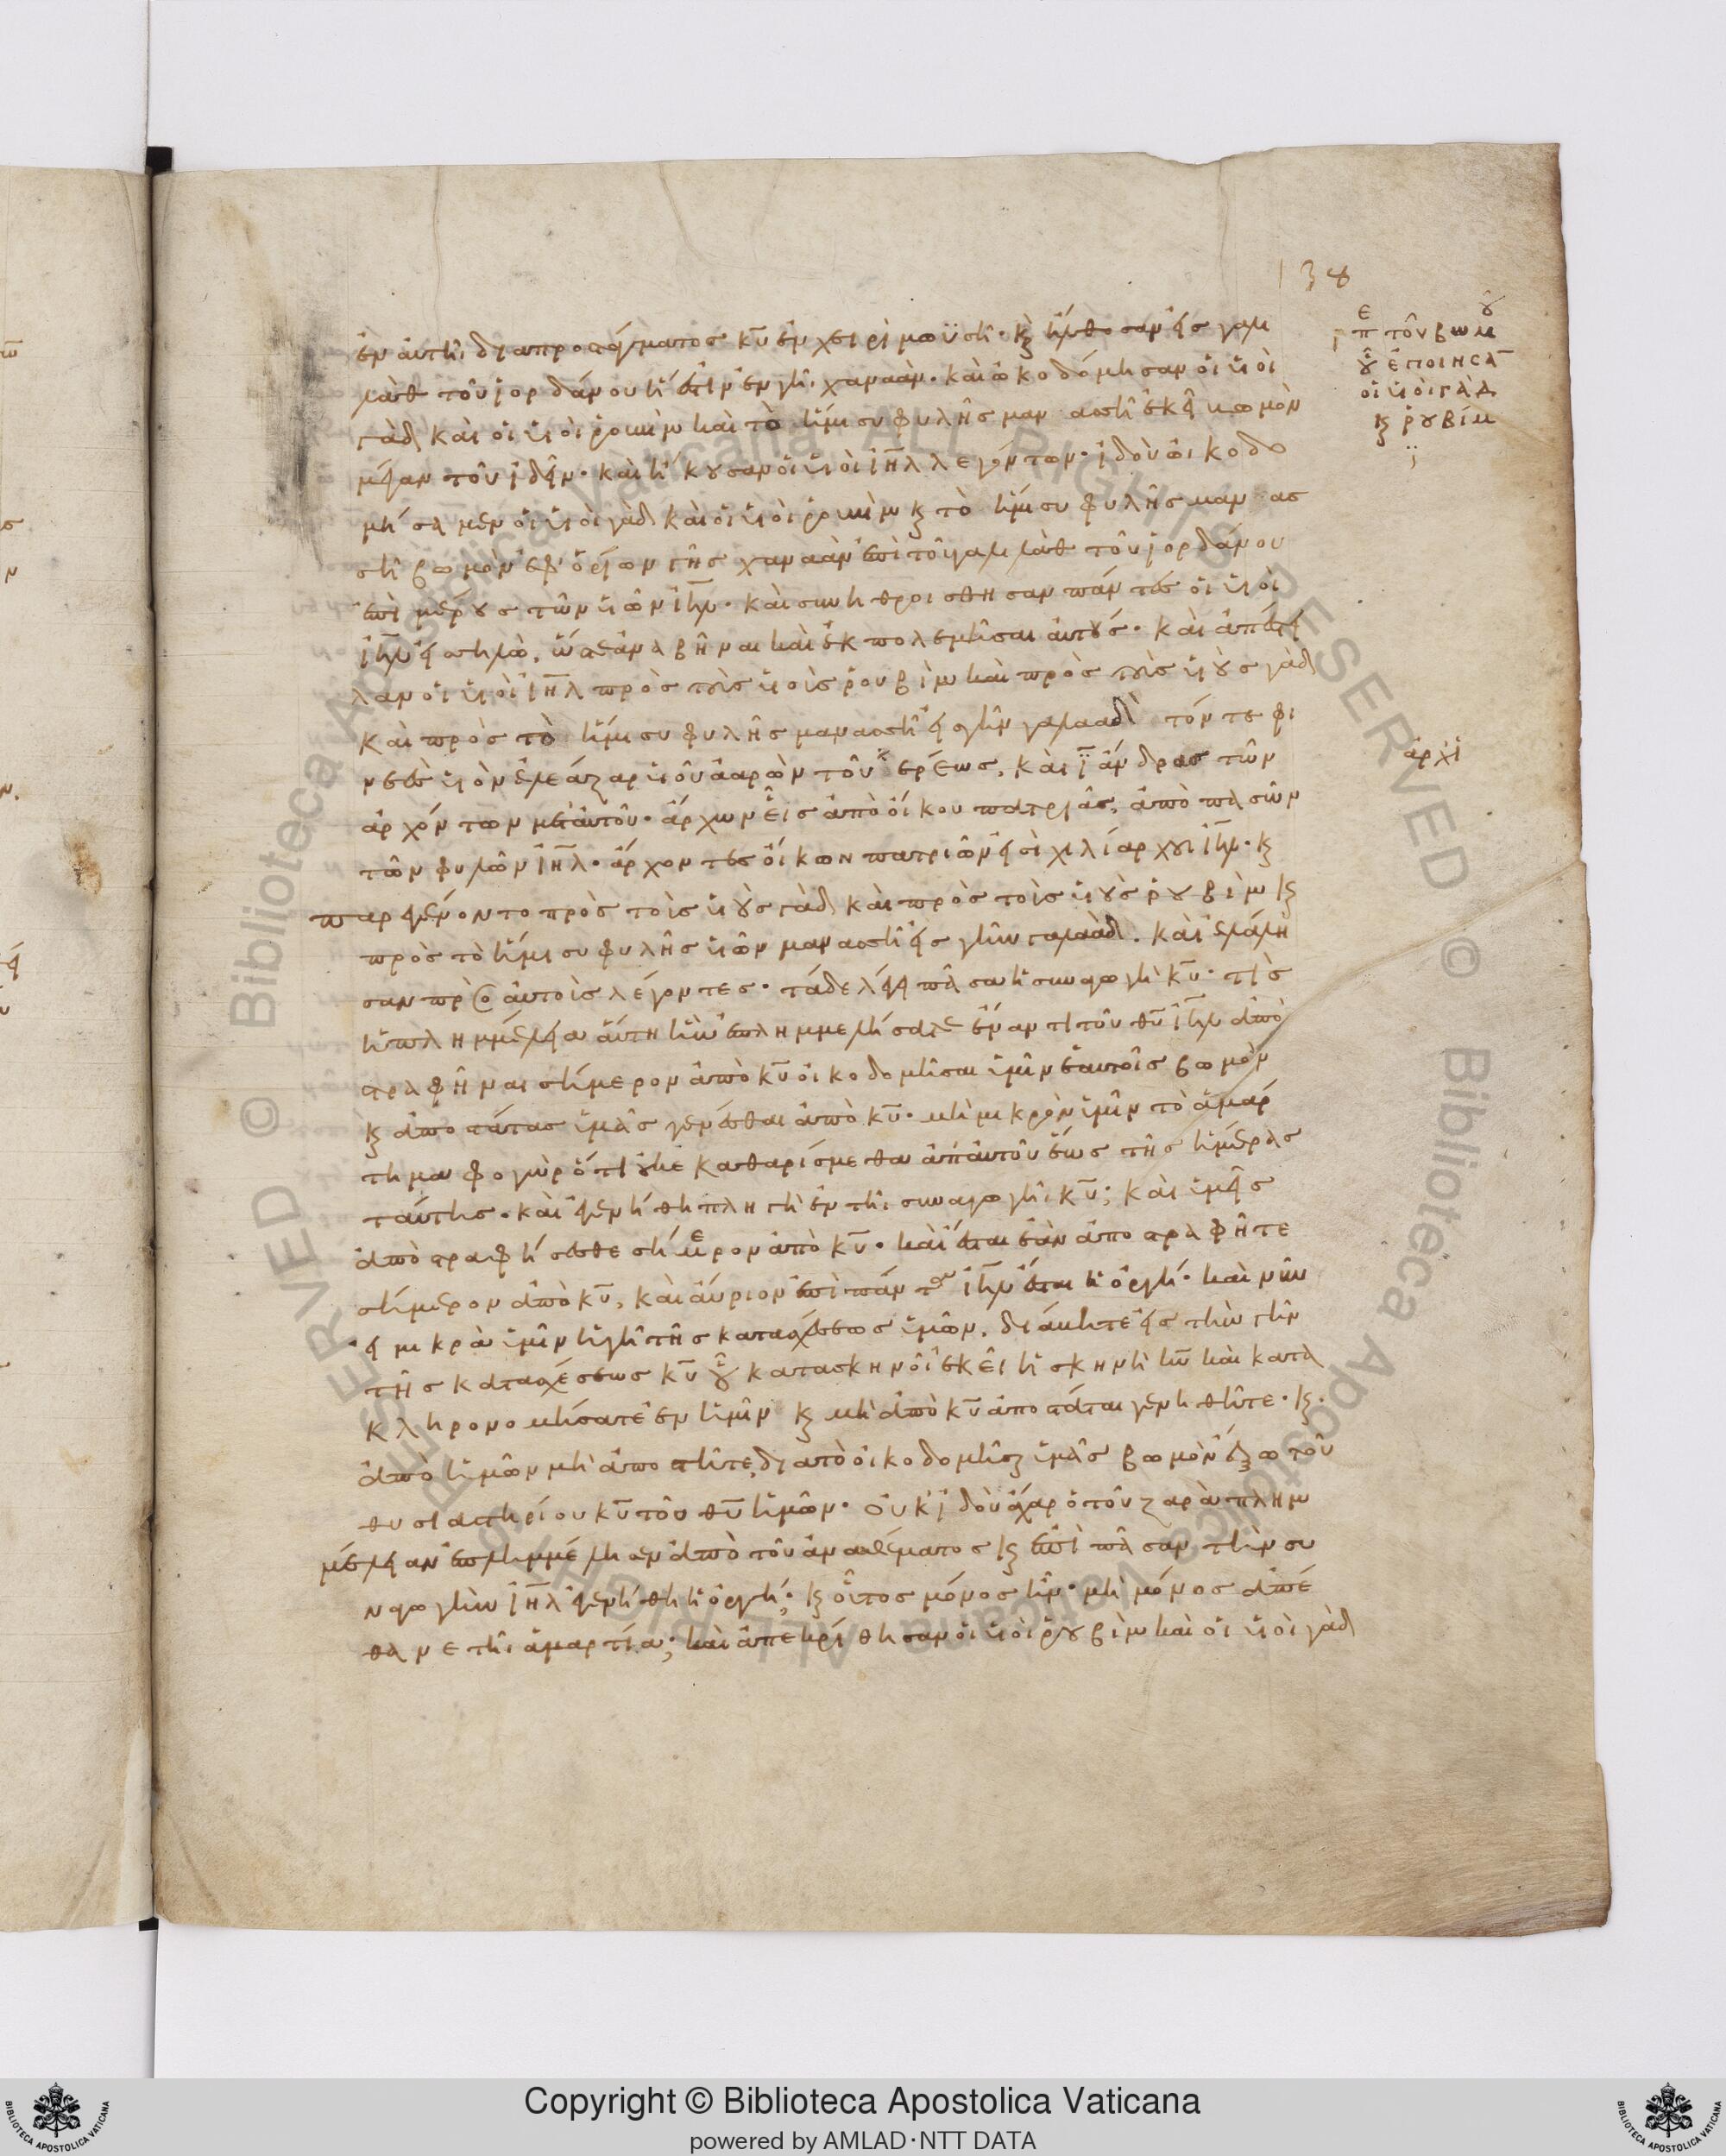 138
ἐν αὐτῆ διὰ προστάγματος κ̅υ̅ ἐν χειρὶ μωϋσῆ· κ̀ ἤλθοσαν εἰς γαλι
λὰθ τοῦ ἰορδάνου ἥ ἐστιν ἐν γῆ χαναὰν· καὶ ὠκοδόμησαν οἱ υἱοὶ
γὰδ καὶ οἱ υἱοὶ ῥουβὶμ καὶ τὸ ἥμισυ φυλῆς μανασσῆ ἐκεῖ βωμὸν
μέγαν τοῦ ἰδεῖν· καὶ ἤκουσαν οἱ υἱοὶ ι̅η̅λ̅ λεγόντων· ἰδοὺ ὠκοδο
μήσαμεν οἱ υἱοὶ γὰδ καὶ οἱ υἱοὶ ῥουβὶμ κ̀ τὸ ἥμισυ φυλῆς μανασ
σῆ βωμὸν ἐφ ὁρίων τῆς χαναὰν ἐπὶ τοῦ γαλιλὰθ τοῦ ἰορδάνου
ἐπὶ μέρους τῶν υἱῶν ι̅η̅λ̅· καὶ συνηθροίσθησαν πάντες οἱ υἱοὶ
ι̅η̅λ̅ εἰς σηλὼ, ὥστε ἀναβῆναι καὶ ἐκπολεμῆσαι αὐτούς· καὶ ἀπέστει
λαν οἱ υἱοὶ ι̅η̅λ̅ πρὸς τοὺς υἱοὺς ῥουβὶμ καὶ πρὸς τοὺς υἱοὺς γὰδ
καὶ πρὸς τὸ ἥμισυ φυλῆς μανασσῆ εἰς γῆν γαλααδ τόν τε φι
νεὲς υἱὸν ἐλεάζαρ υἱοῦ ἀαρὼν τοῦ ἱερέως, καὶ ι̅ ἄνδρας τῶν
ἀρχόντων μετ αὐτοῦ· ἄρχων εἷς ἀπὸ οἴκου πατριᾶς, ἀπὸ πασῶν
τῶν φυλῶν ι̅η̅λ̅· ἄρχοντες οἴκων πατριῶν εἰσὶ χιλίαρχοι ι̅η̅λ̅· κ̀
παρεγένοντο πρὸς τοὺς υἱοὺς γὰδ καὶ πρὸς τοὺς υἱοὺς ῥουβὶμ κ̀
πρὸς τὸ ἥμισυ φυλῆς υἱῶν μανασσῆ εἰς γῆν γαλαὰδ. καὶ ἐλάλη
σαν πρὸς αὐτοὺς λέγοντες· τάδε λέγει πᾶσα ἡ συναγωγὴ κ̅υ̅· τίς
ἡ πλημμέλεια αὕτη ἣν ἐπλημμελήσατε ἔναντι τοῦ θ̅υ̅ ι̅η̅λ̅ ἀπο
στραφῆναι σήμερον ἀπὸ κ̅υ̅ οἰκοδομῆσαι ὑμῖν ἑαυτοῖς βωμὸν
κ̀ ἀποστάτας ὑμᾶς γενέσθαι ἀπὸ κ̅υ̅· μὴ μικρὸν ὑμῖν τὸ ἁμάρ
τημα φογὼρ ὅτι οὐκ ἐκαθαρίσμεθα ἀπ αὐτοῦ ἕως τῆς ἡμέρας
ταύτης. καὶ ἐγενήθη πληγὴ ἐν τῆ συναγωγῆ κ̅υ̅; καὶ ὑμεῖς
ἀποστραφήσεσθε σήμερον ἀπὸ κ̅υ̅· καὶ ἔσται ἐὰν ἀποστραφῆτε
σήμερον ἀπὸ κ̅υ̅, καὶ αὔριον ἐπὶ πάντα ι̅η̅λ̅ ἔσται ἡ ὀργή· καὶ νῦν
εἰ μικρὰ ὑμῖν ἡ γῆ τῆς κατασχέσεως ὑμῶν. διάβητε εἰς τὴν γῆν
τῆς κατασχέσεως κ̅υ̅ οὗ κατασκηνοῖ ἐκεῖ ἡ σκηνὴ κ̅υ̅ καὶ κατα
κληρονομήσατε ἐν ἡμῖν κ̀ μὴ ἀπὸ κ̅υ̅ ἀποστάται γενηθῆτε· κ̀
ἀπὸ ἡμῶν μὴ ἀποστῆτε, διὰ τὸ οἰκοδομῆσαι ὑμᾶς βωμὸν ἔξω τοῦ
θυσιαστηρίου κ̅υ̅ τοῦ θ̅υ̅ ἡμῶν· οὐκ ἰδοὺ ἄχαρ ὁ τοῦ ζαρὰ πλημ
μέλειαν ἐπλημμέλησεν ἀπὸ τοῦ ἀναθέματος κ̀ ἐπὶ πᾶσαν τὴν συ
ναγωγὴν ι̅η̅λ̅ ἐγενήθη ἡ ὀργή; κ̀ οὗτος μόνος ἦν· μὴ μόνος ἀπέ
θανε τῆ ἁμαρτία; καὶ ἀπεκρίθησαν οἱ υἱοὶ ῥουβὶμ καὶ οἱ υἱοὶ γὰδ
πε τὸν βωμοῦ
οὗ ἐποίησα̅
οἱ υἱοὶ γὰδ
κ̀ ῥουβίμ
ἀρχὶ